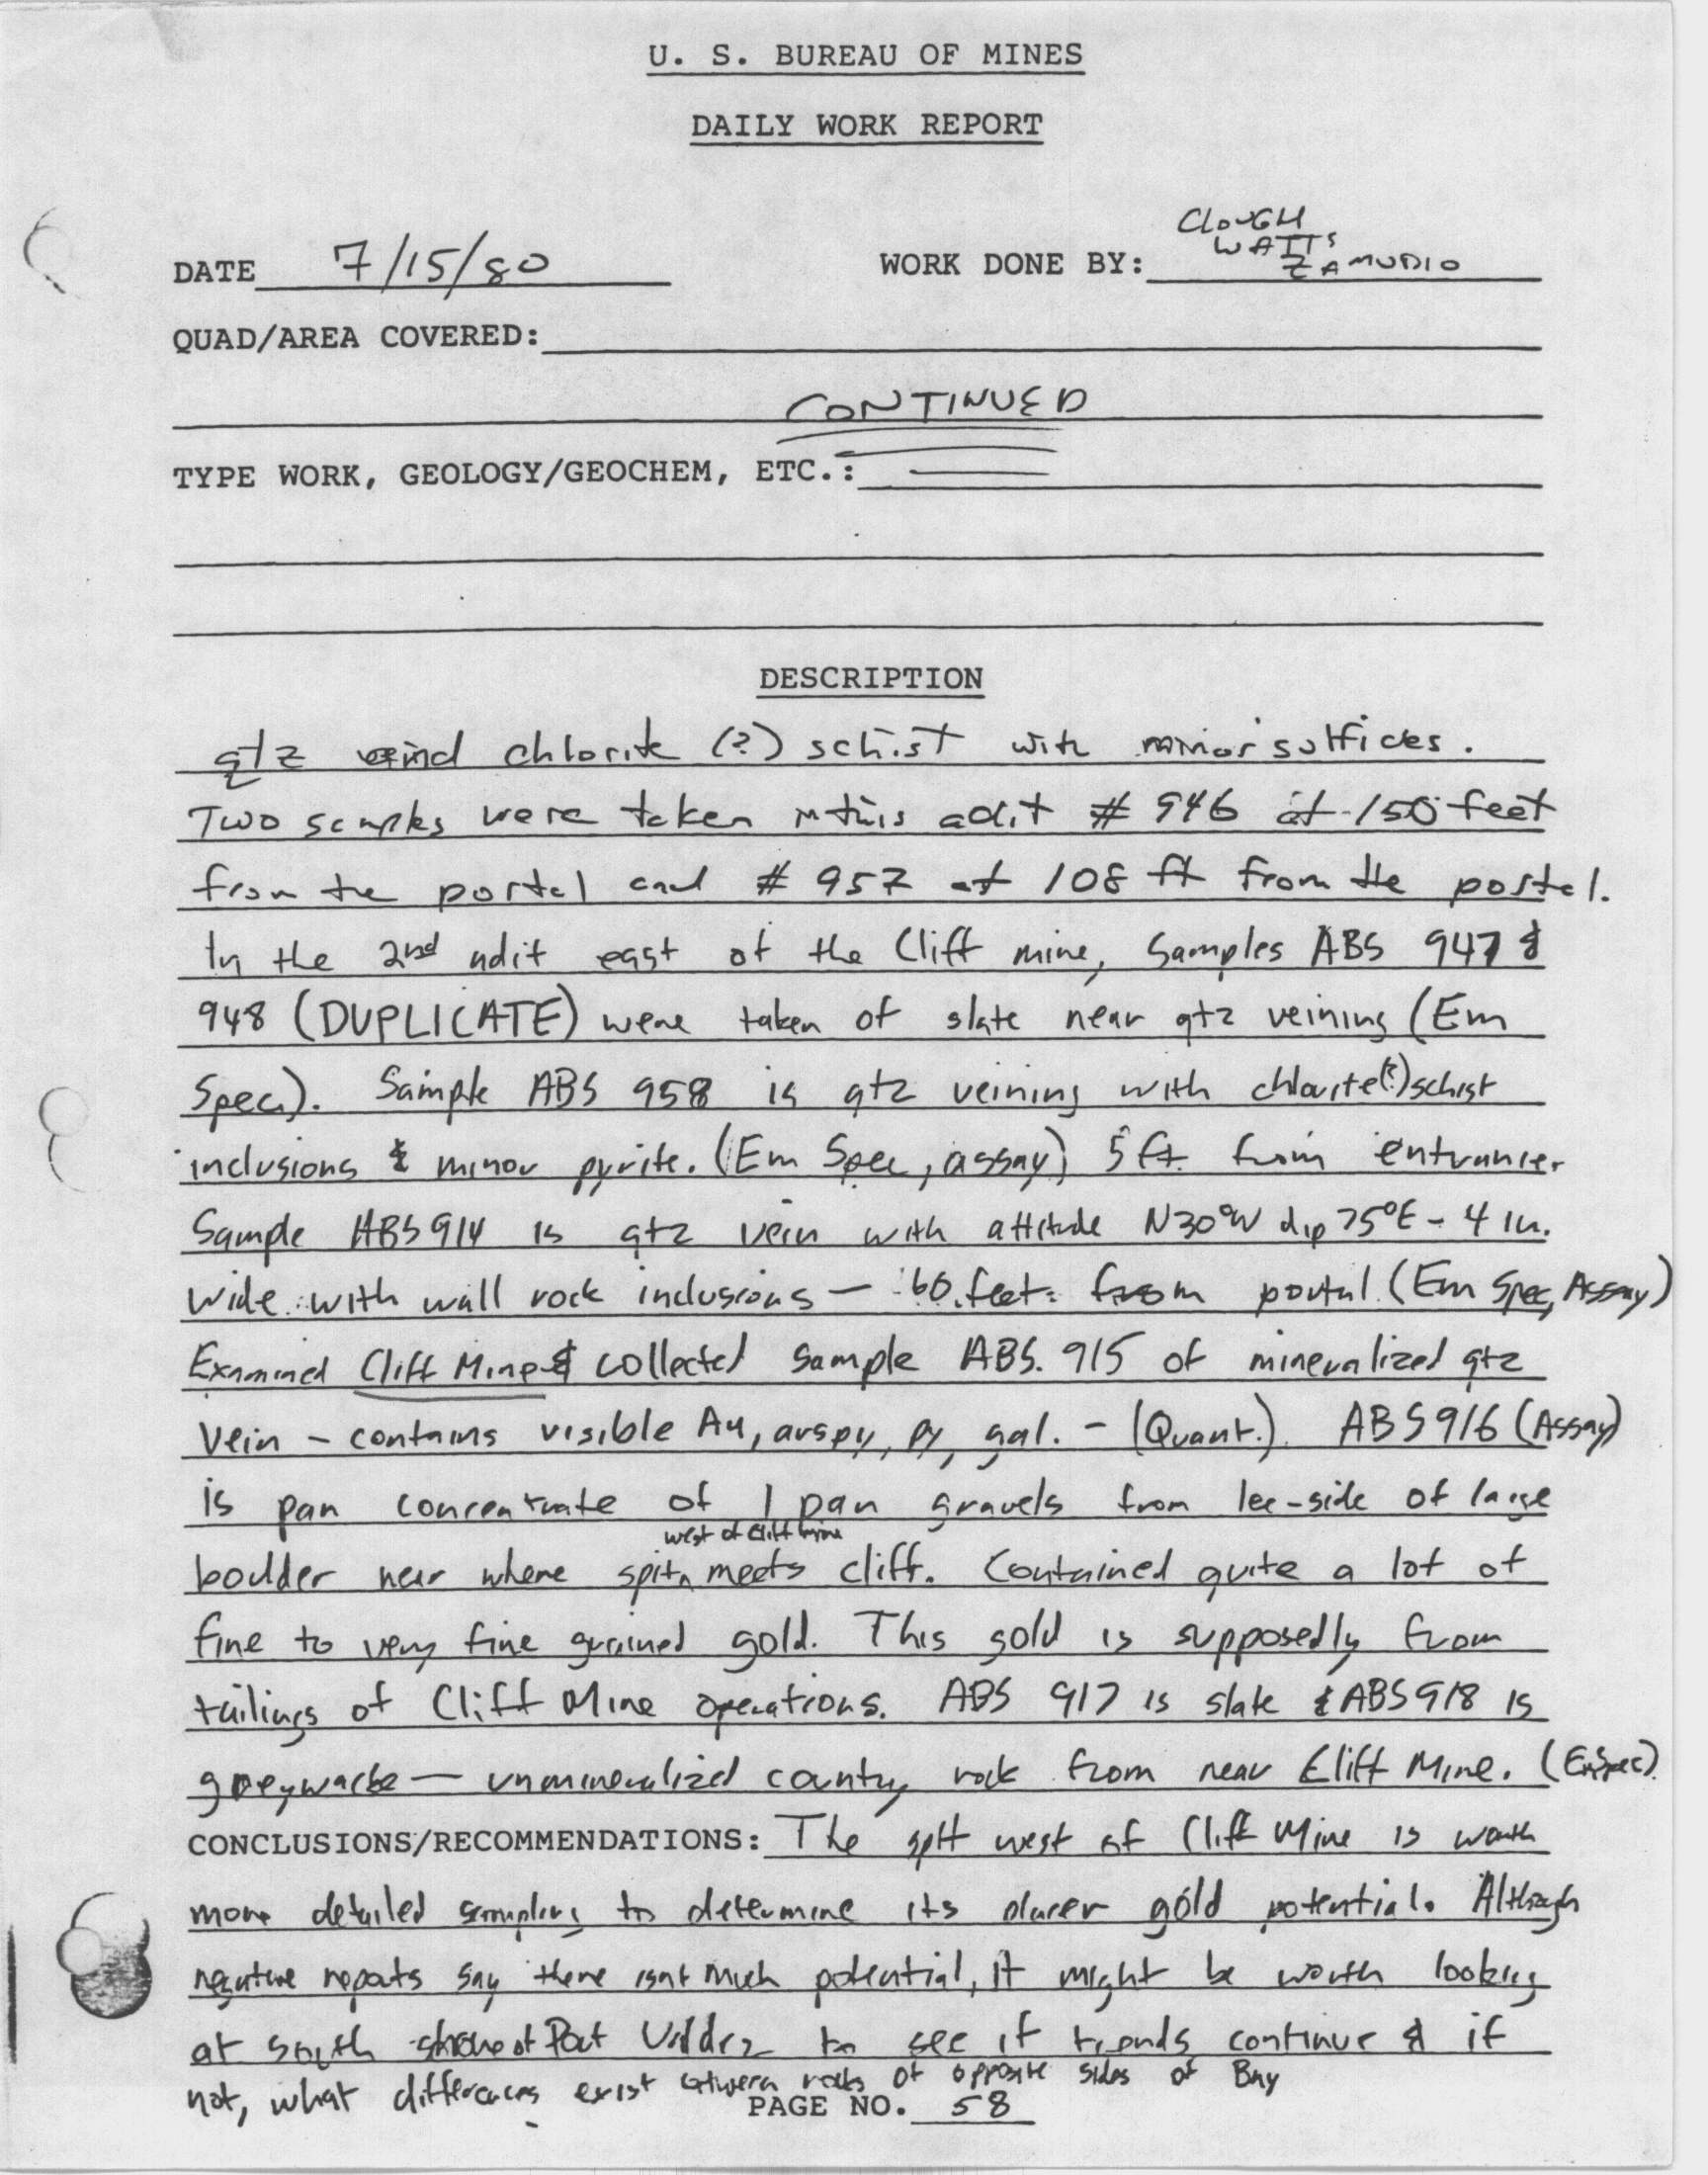 U. S. BUREAU OF MINES
DAILY WORK REPORT
CLOUGH
WATTS
ZAMUDIO
DATE 7/15/80 WORK DONE BY:
QUAD/AREA COVERED:
CONTINUED
TYPE WORK, GEOLOGY/GEOCHEM, ETC.:
DESCRIPTION
qtz veind chlorite (?) schist with minor sulfides.
Two samples were taken in this adit # 946 at 150 feet
from the portal and # 957 at 108 ft from the portal.
In the 2nd adit east of the Cliff mine, Samples ABS 947 &
948 (DUPLICATE) were taken of slate near qtz veining (Em
Spec.). Sample ABS 958 is qtz veining with chlorite(?) schist
inclusions & minor pyrite. (Em Spec, assay) 5 ft. from entrance.
Sample ABS 914 is qtz vein with attitude N30°W dip 75°E - 4 in.
wide with wall rock inclusions — 60 feet from portal (Em Spec, Assay)
Examined Cliff Mine & collected sample ABS. 915 of mineralized qtz
vein - contains visible Au, arspy, py, gal. - (Quant.). ABS 916 (Assay)
is pan concentrate of 1 pan gravels from lee-side of large
west of Cliff mine
boulder near where spit meets cliff. Contained quite a lot of
fine to very fine grained gold. This gold is supposedly from
tailings of Cliff Mine operations. ABS 917 is slate & ABS 918 is
greywacke — unmineralized country rock from near Cliff Mine. (EmSpec).
CONCLUSIONS/RECOMMENDATIONS: The spit west of Cliff Mine is worth
more detailed sampling to determine its placer gold potential. Although
negative reports say there isnt much potential, it might be worth looking
at south shore of Port Valdez to see if trends continue & if
not, what differences exist between rocks of opposite sides of Bay
PAGE NO. 58